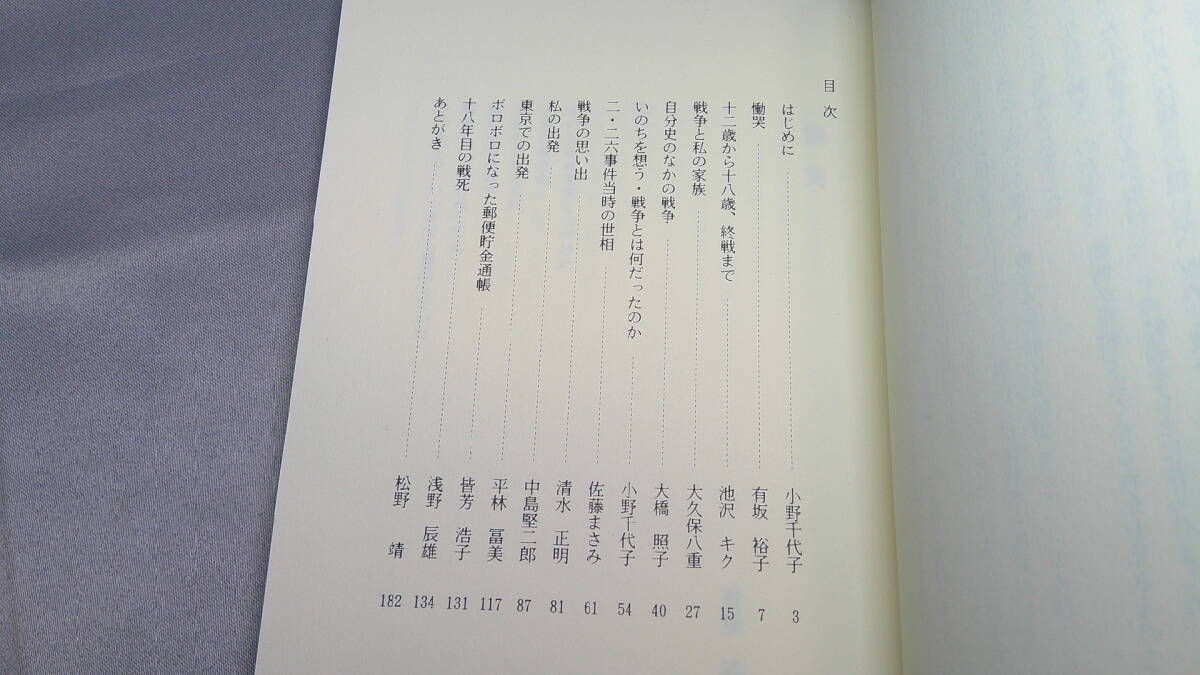 目次
はじめに 小野千代子 3
慟哭 有坂 裕子 7
十二歳から十八歳、終戦まで 池沢 キク 15
戦争と私の家族 大久保八重 27
自分史のなかの戦争 大橋 照子 40
いのちを想う・戦争とは何だったのか 小野千代子 54
二・二六事件当時の世相 佐藤まさみ 61
戦争の思い出 清水 正明 81
私の出発 中島堅二郎 87
東京での出発 平林 冨美 117
ボロボロになった郵便貯金通帳 皆芳 浩子 131
十八年目の戦死 浅野 辰雄 134
あとがき 松野 靖 182